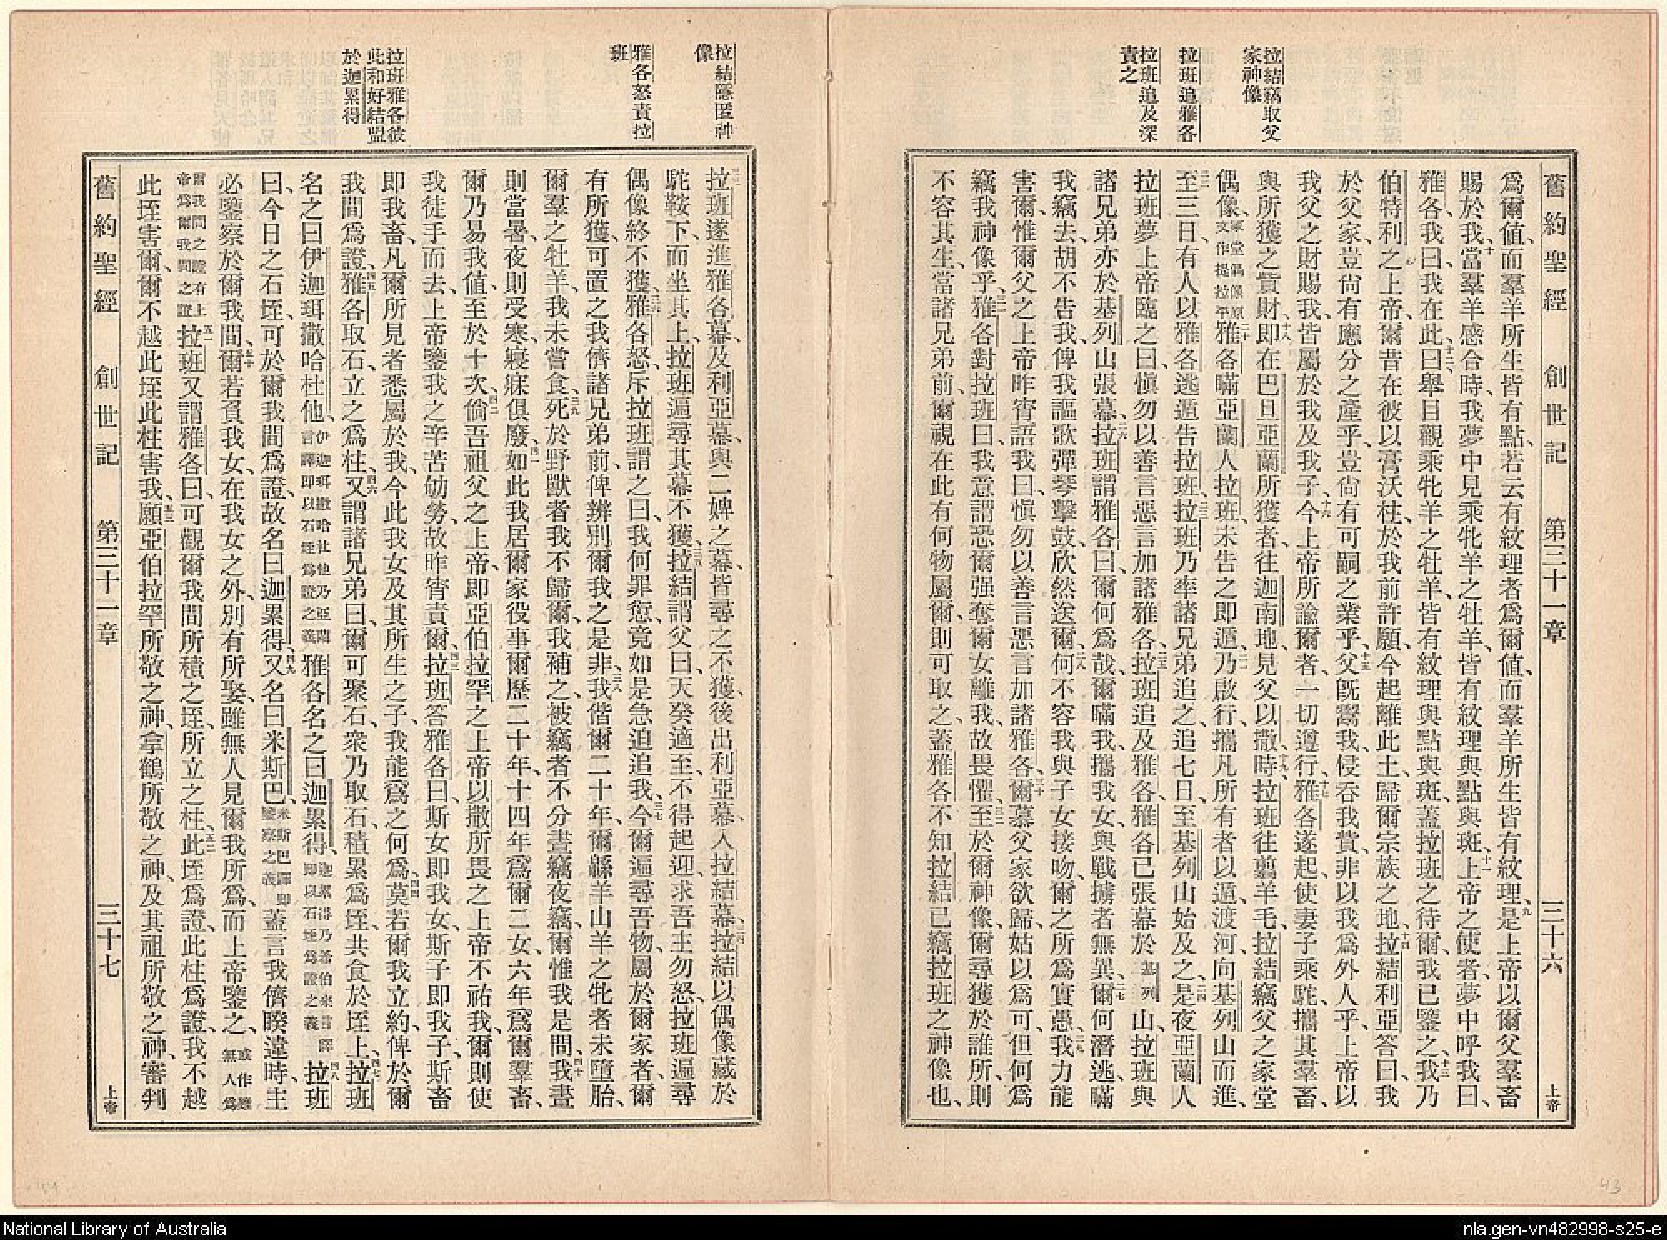 拉結竊取父
家神像
拉班追雅各
拉班追及深
責之
舊約聖經 創世記 第三十一章 三十六 上帝
爲爾值、而羣羊所生皆有點、若云有紋理者爲爾值、而羣羊所生皆有紋理、是上帝以爾父羣畜
賜於我、當羣羊感合時、我夢中見乘牝羊之牡羊、皆有紋理與點與斑、上帝之使者、夢中呼我曰、
雅各、我曰、我在此、曰、舉目觀乘牝羊之牡羊、皆有紋理與點與斑、蓋拉班之待爾、我已鑒之、我乃
伯特利之上帝、爾昔在彼以膏沃柱、於我前許願、今起離此土、歸爾宗族之地、拉結利亞答曰、我
於父家、豈尙有應分之產乎、豈尙有可嗣之業乎、父旣鬻我、侵吞我貲、非以我爲外人乎、上帝以
我父之財賜我、皆屬於我及我子、今上帝所諭爾者、一切遵行、雅各遂起、使妻子乘駝、攜其羣畜、
與所獲之貲財、即在巴旦亞蘭所獲者、往迦南地、見父以撒、時拉班往翦羊毛、拉結竊父之家堂
偶像、家堂偶像原文作提拉平雅各瞞亞蘭人拉班、未告之即遁、乃啟行、攜凡所有者以遁、渡河、向基列山而進、
至三日、有人以雅各逃遁告拉班、拉班乃率諸兄弟追之、追七日、至基列山始及之、是夜亞蘭人
拉班夢上帝臨之曰、愼勿以善言惡言加諸雅各、拉班追及雅各、雅各已張幕於基列山、拉班與
諸兄弟亦於基列山張幕、拉班謂雅各曰、爾何爲哉、爾瞞我、攜我女、與戰擄者無異、爾何潛逃瞞
我竊去、胡不告我、俾我謳歌彈琴擊鼓、欣然送爾、何不容我與子女接吻、爾之所爲實愚、我力能
害爾、惟爾父之上帝昨宵語我曰、愼勿以善言惡言加諸雅各、爾慕父家欲歸、姑以爲可、但何爲
竊我神像乎、雅各對拉班曰、我意謂恐爾强奪爾女離我、故畏懼、至於爾神像、爾尋獲於誰所、則
不容其生、當諸兄弟前、爾視在此有何物屬爾、則可取之、蓋雅各不知拉結已竊拉班之神像也、
拉結隱匿神
像
雅各怒責拉
班
拉班雅各彼
此和好結盟
於迦累得
拉班遂進雅各幕、及利亞幕、與二婢之幕、皆尋之不獲、後出利亞幕、入拉結幕、拉結以偶像藏於
駝鞍下、而坐其上、拉班遍尋其幕不獲、拉結謂父曰、天癸適至、不得起迎、求吾主勿怒、拉班遍尋
偶像終不獲、雅各怒、斥拉班謂之曰、我何罪愆、竟如是急迫追我、今爾遍尋吾物、屬於爾家者、爾
有所獲、可置之我儕諸兄弟前、俾辨別爾我之是非、我偕爾二十年、爾緜羊山羊之牝者未墮胎、
爾羣之牡羊、我未嘗食、死於野獸者、我不歸爾、我補之、被竊者、不分晝竊夜竊、爾惟我是問、我晝
則當暑、夜則受寒、寢寐俱廢、如此我居爾家役事爾、歷二十年、十四年爲爾二女、六年爲爾羣畜、
爾乃易我値、至於十次、倘吾祖父之上帝、即亞伯拉罕之上帝、以撒所畏之上帝、不祐我、爾則使
我徒手而去、上帝鑒我之辛苦劬勞、故昨宵責爾、拉班答雅各曰、斯女即我女、斯子即我子、斯畜
即我畜、凡爾所見者悉屬於我、今此我女及其所生之子、我能爲之何爲、莫若爾我立約、俾於爾
我間爲證、雅各取石、立之爲柱、又謂諸兄弟曰、爾可聚石、衆乃取石、積累爲垤、共食於垤上、拉班
名之曰伊迦珥撒哈杜他、伊迦珥撒哈杜他乃亞蘭言譯即以石垤爲證之義雅各名之曰迦累得、迦累得乃希伯來言譯即以石垤爲證之義拉班
曰、今日之石垤、可於爾我間爲證、故名曰迦累得、又名曰米斯巴、米斯巴譯即鑒察之義蓋言我儕睽違時、主
必鑒察於爾我間、爾若負我女、在我女之外、別有所娶、雖無人見爾我所爲、而上帝鑒之、
爾我間之證有上帝爲爾我間之證拉班又謂雅各曰、可觀爾我間所積之垤、所立之柱、此垤爲證、此柱爲證、我不越
此垤害爾、爾不越此垤此柱害我、願亞伯拉罕所敬之神、拿鶴所敬之神、及其祖所敬之神審判
舊約聖經 創世記 第三十一章 三十七 上帝
43
National Library of Australia
nla.gen-vn482998-s25-e